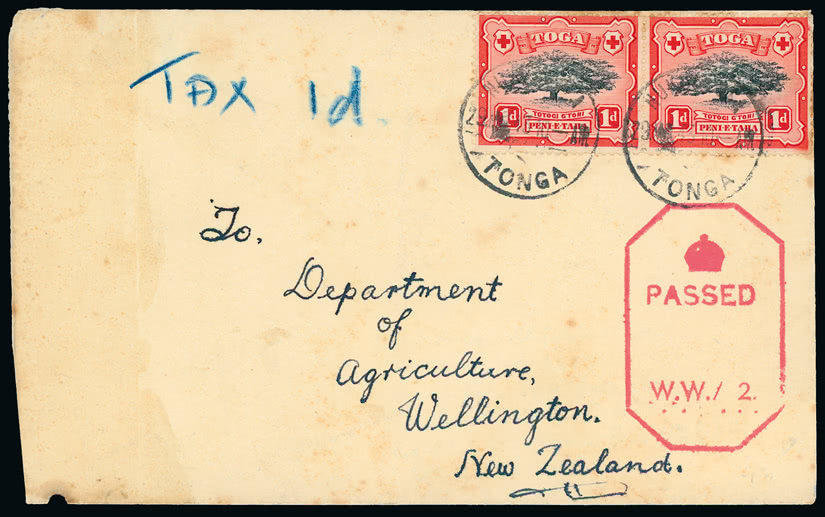 TOGA TOGA
1d TOTOGI O'TOHI 1d 1d TOTOGI O'TOHI 1d
PENI-E-TAHA PENI-E-TAHA
TONGA TONGA
TAX 1d.
To.
Department
of
Agriculture,
Wellington.
New Zealand.
PASSED
W.W./ 2.